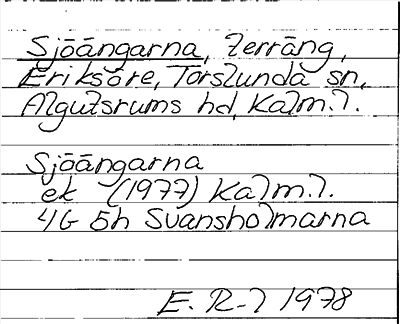 Sjöängarna, terräng,
Eriksöre, Torslunda sn,
Algutsrums hd, Kalm.l.
Sjöängarna
ek (1977) Kalm.l.
4G 5h Svansholmarna
E. R-l 1978